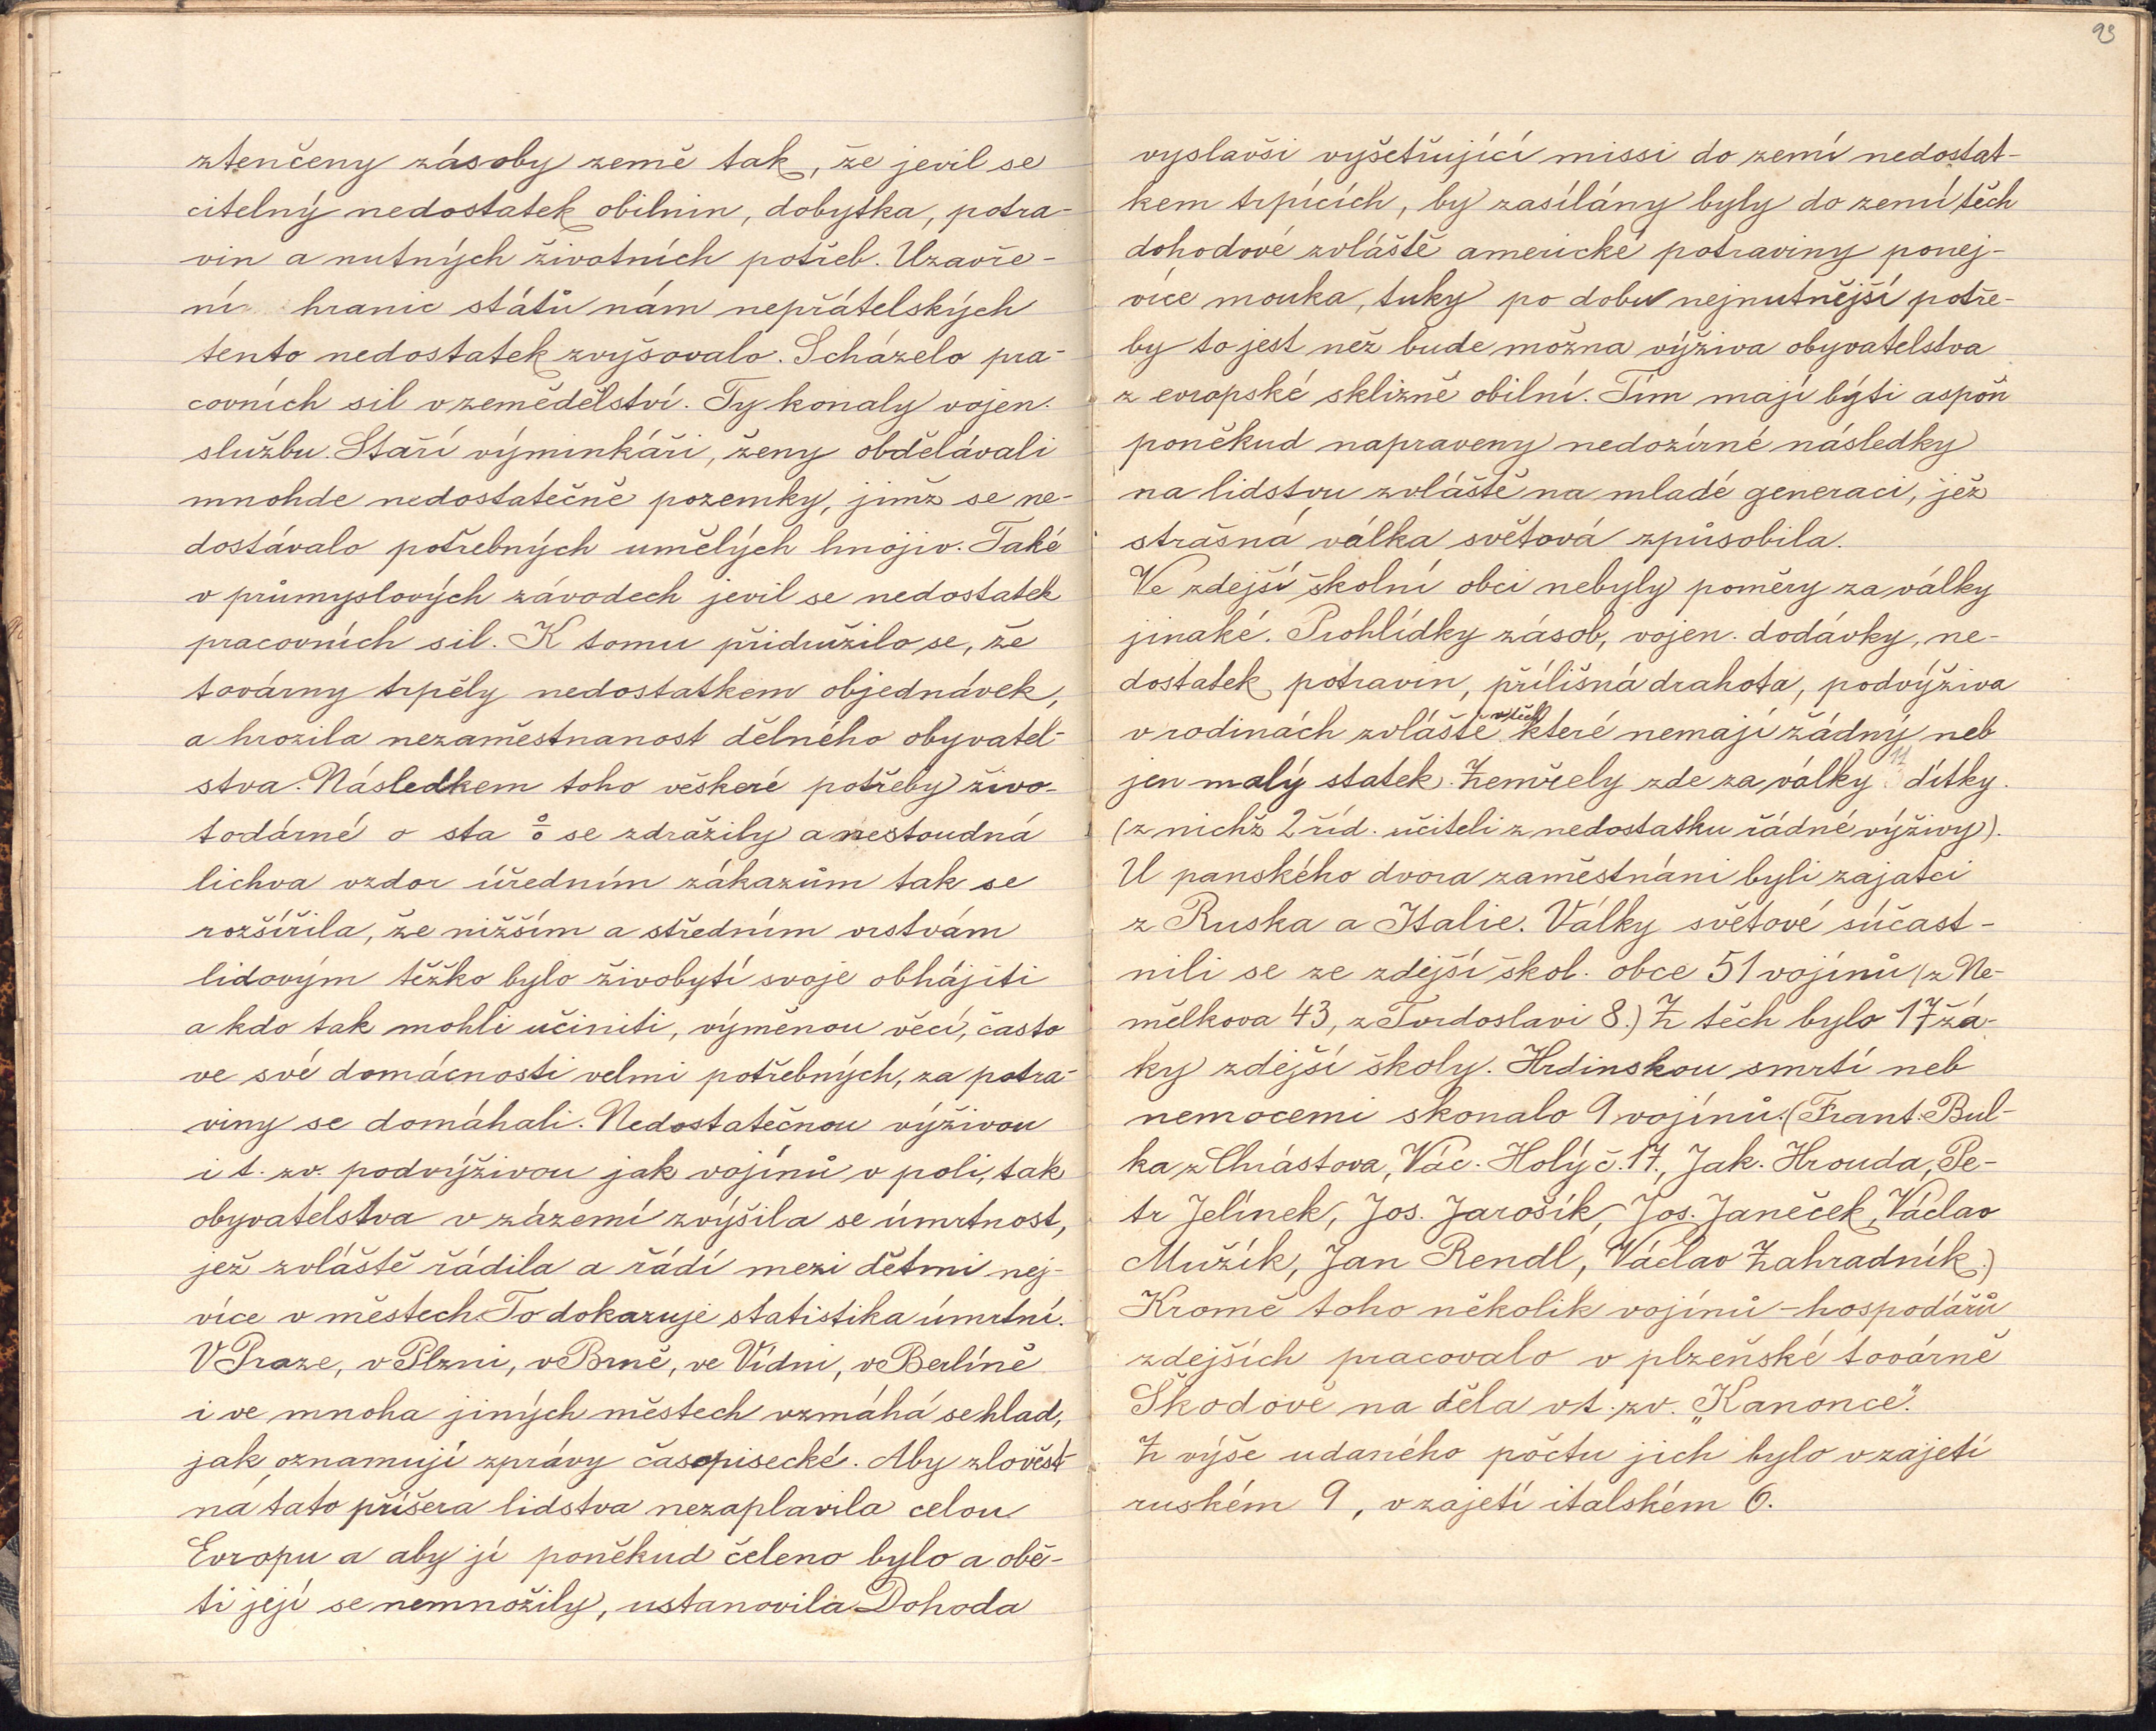 ztenčeny zásoby země tak, že jevil se
citelný nedostatek obilnin, dobytka, potra-
vin a nutných životních potřeb. Uzavře-
ní hranic států nám nepřátelských
tento nedostatek zvyšovalo. Scházelo pra-
covních sil v zemědělství. Ty konaly vojen.
službu. Staří výminkáři, ženy obdělávali
mnohde nedostatečně pozemky, jimž se ne-
dostávalo potřebných umělých hnojiv. Také
v průmyslových závodech jevil se nedostatek
pracovních sil. K tomu přidružilo se, že
továrny trpěly nedostatkem objednávek,
a hrozila nezaměstnanost dělného obyvatel-
stva. Následkem toho veškeré potřeby živo-
todárné o sta % se zdražily a nestoudná
lichva vzdor úředním zákazům tak se
rozšířila, že nižším a středním vrstvám
lidovým těžko bylo živobytí svoje obhájiti
a kdo tak mohli učiniti, výměnou věcí, často
ve své domácnosti velmi potřebných, za potra-
viny se domáhali. Nedostatečnou výživou
i t. zv. podvýživou jak vojínů v poli, tak
obyvatelstva v zázemí zvýšila se úmrtnost,
jež zvláště řádila a řádí mezi dětmi nej-
více v městech. To dokazuje statistika úmrtní.
V Praze, v Plzni, v Brně, ve Vídni, v Berlíně
i ve mnoha jiných městech vzmáhá se hlad,
jak oznamují zprávy časopisecké. Aby zlověst-
ná tato příšera lidstva nezaplavila celou
Evropu a aby jí poněkud čeleno bylo a obě-
ti její se nemnožily, ustanovila Dohoda
93
vyslavši vyšetřující missi do zemí nedostat-
kem trpících, by zasílány byly do zemí těch
dohodové zvláště americké potraviny ponej-
více mouka, tuky po dobu nejnutnější potře-
by to jest než bude možna výživa obyvatelstva
z evropské sklizně obilní. Tím mají býti aspoň
poněkud napraveny nedozírné následky
na lidstvu zvláště na mladé generaci, jež
strašná válka světová způsobila.
Ve zdejší školní obci nebyly poměry za války
jinaké. Prohlídky zásob, vojen. dodávky, ne-
dostatek potravin, přílišná drahota, podvýživa
v rodinách zvláště v těch které nemají žádný neb
jen malý statek. Zemřely zde za války 12 dítky.
(z nichž 2 říd. učiteli z nedostatku řádné výživy).
U panského dvora zaměstnáni byli zajatci
z Ruska a Italie. Války světové súčast-
nili se ze zdejší škol. obce 51 vojínů (z Ne-
mělkova 43, z Tvrdoslavi 8.) Z těch bylo 17 žá-
ky zdejší školy. Hrdinskou smrtí neb
nemocemi skonalo 9 vojínů. (Frant. Bul-
ka z Chrástova, Vác. Holý č. 17., Jak. Hrouda, Pe-
tr Jelínek, Jos. Jarošík, Jos. Janeček, Václav
Mužík, Jan Rendl, Václav Zahradník.)
Kromě toho několik vojínů - hospodářů
zdejších pracovalo v plzeňské továrně
Škodově na děla v t. zv. „Kanonce".
Z výše udaného počtu jich bylo v zajetí
ruském 9, v zajetí italském 6.